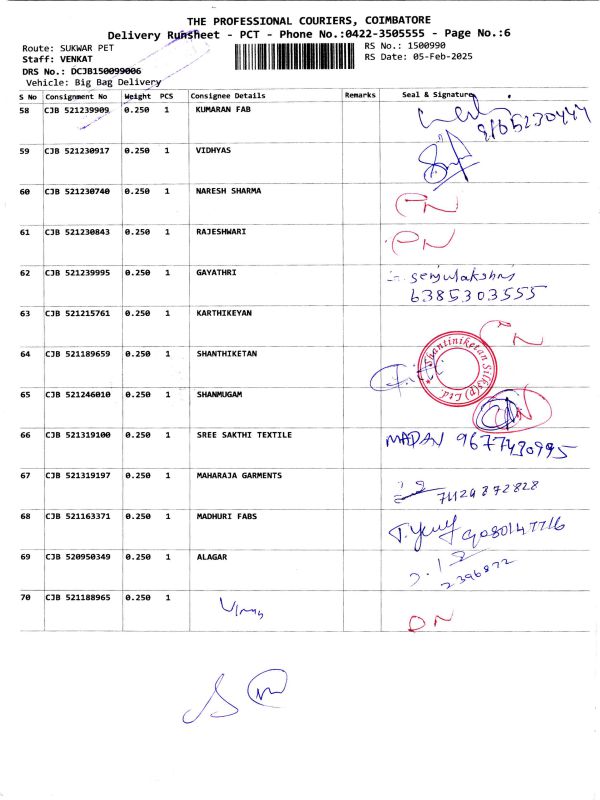 THE PROFESSIONAL COURIERS, COIMBATORE
Delivery Runsheet - PCT - Phone No.:0422-3505555 - Page No.:6
Route: SUKWAR PET
RS No.: 1500990
Staff: VENKAT
RS Date: 05-Feb-2025
DRS No.: DCJB150099006
Vehicle: Big Bag Delivery
S No Consignment No Weight PCS Consignee Details Remarks Seal & Signature
58 CJB 521239909 0.250 1 KUMARAN FAB
59 CJB 521230917 0.250 1 VIDHYAS
60 CJB 521230740 0.250 1 NARESH SHARMA
61 CJB 521230843 0.250 1 RAJESHWARI
62 CJB 521239995 0.250 1 GAYATHRI
6385303555
63 CJB 521215761 0.250 1 KARTHIKEYAN
64 CJB 521189659 0.250 1 SHANTHIKETAN
Shantiniketan Silk (P) Ltd.
65 CJB 521246010 0.250 1 SHANMUGAM
66 CJB 521319100 0.250 1 SREE SAKTHI TEXTILE MADAN 9677430995
67 CJB 521319197 0.250 1 MAHARAJA GARMENTS
68 CJB 521163371 0.250 1 MADHURI FABS
69 CJB 520950349 0.250 1 ALAGAR
2396872
70 CJB 521188965 0.250 1 DN